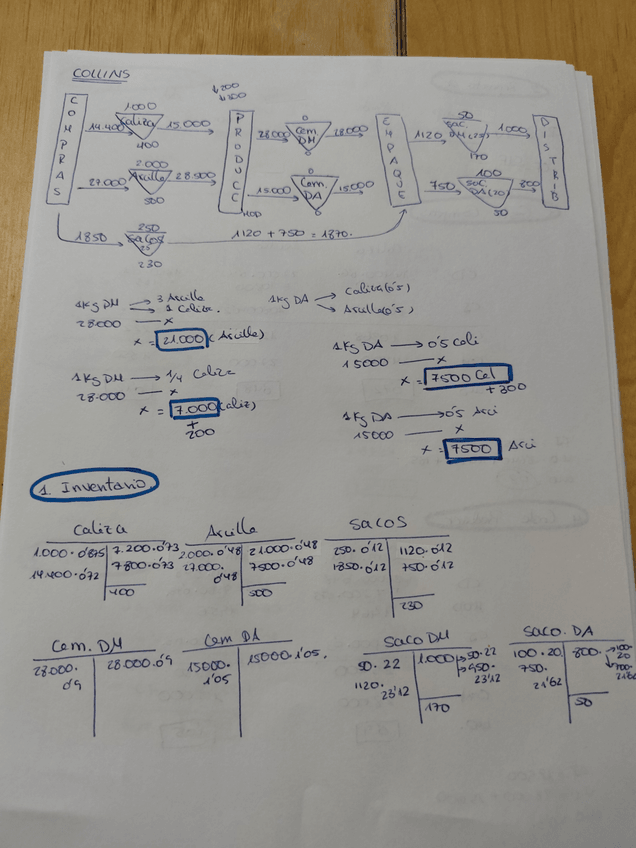 COLLINS
↓200
↓300
COMPRAS
1000
14.400 → Caliza 15.000 →
400
PRODUCC
400
0
28000 → Cem DM 28000 →
0
EMPAQUE
50
1120 → Sac. DM(25) 1000 →
170
DISTRIB
2.000
27.000 → Arcilla 28.500 →
500
0
15.000 → Cem. DA 15000 →
0
100
750 → Sac. DA(20) 800 →
50
250
1850 → Sacos 1120 + 750 = 1870.
25
230
1Kg DM → 3 Arcilla
→ 1 Caliza.
28000 — x
x = 21.000 (Arcilla)
1Kg DA → Caliza(0'5)
→ Arcilla(0'5)
1Kg DM → 1/4 Caliza
28.000 — x
x = 7.000 (Caliz)
+
200
1Kg DA → 0'5 Cali
15000 — x
x = 7500 Cal
+300
1Kg DA → 0'5 Arci
15000 — x
x = 7500 Arci
1. Inventario
Caliza
1.000·0'875 7.200·0'73
14.400·0'72 7800·0'73
400
Arcilla
2.000·0'48 21.000·0'48
27.000· 7500·0'48
0'48
500
SACOS
250·0'12 1120·0'12
1850·0'12 750·0'12
230
Cem. DM
28.000· 28.000·0'9
0'9
Cem DA
15000· 15000·1'05.
1'05
Saco DM
50·22 1.000 → 50·22
→ 950·
1120· 23'12
23'12
170
Saco. DA
100·20 800· → 100·
20
750· → 700·
21'62
50